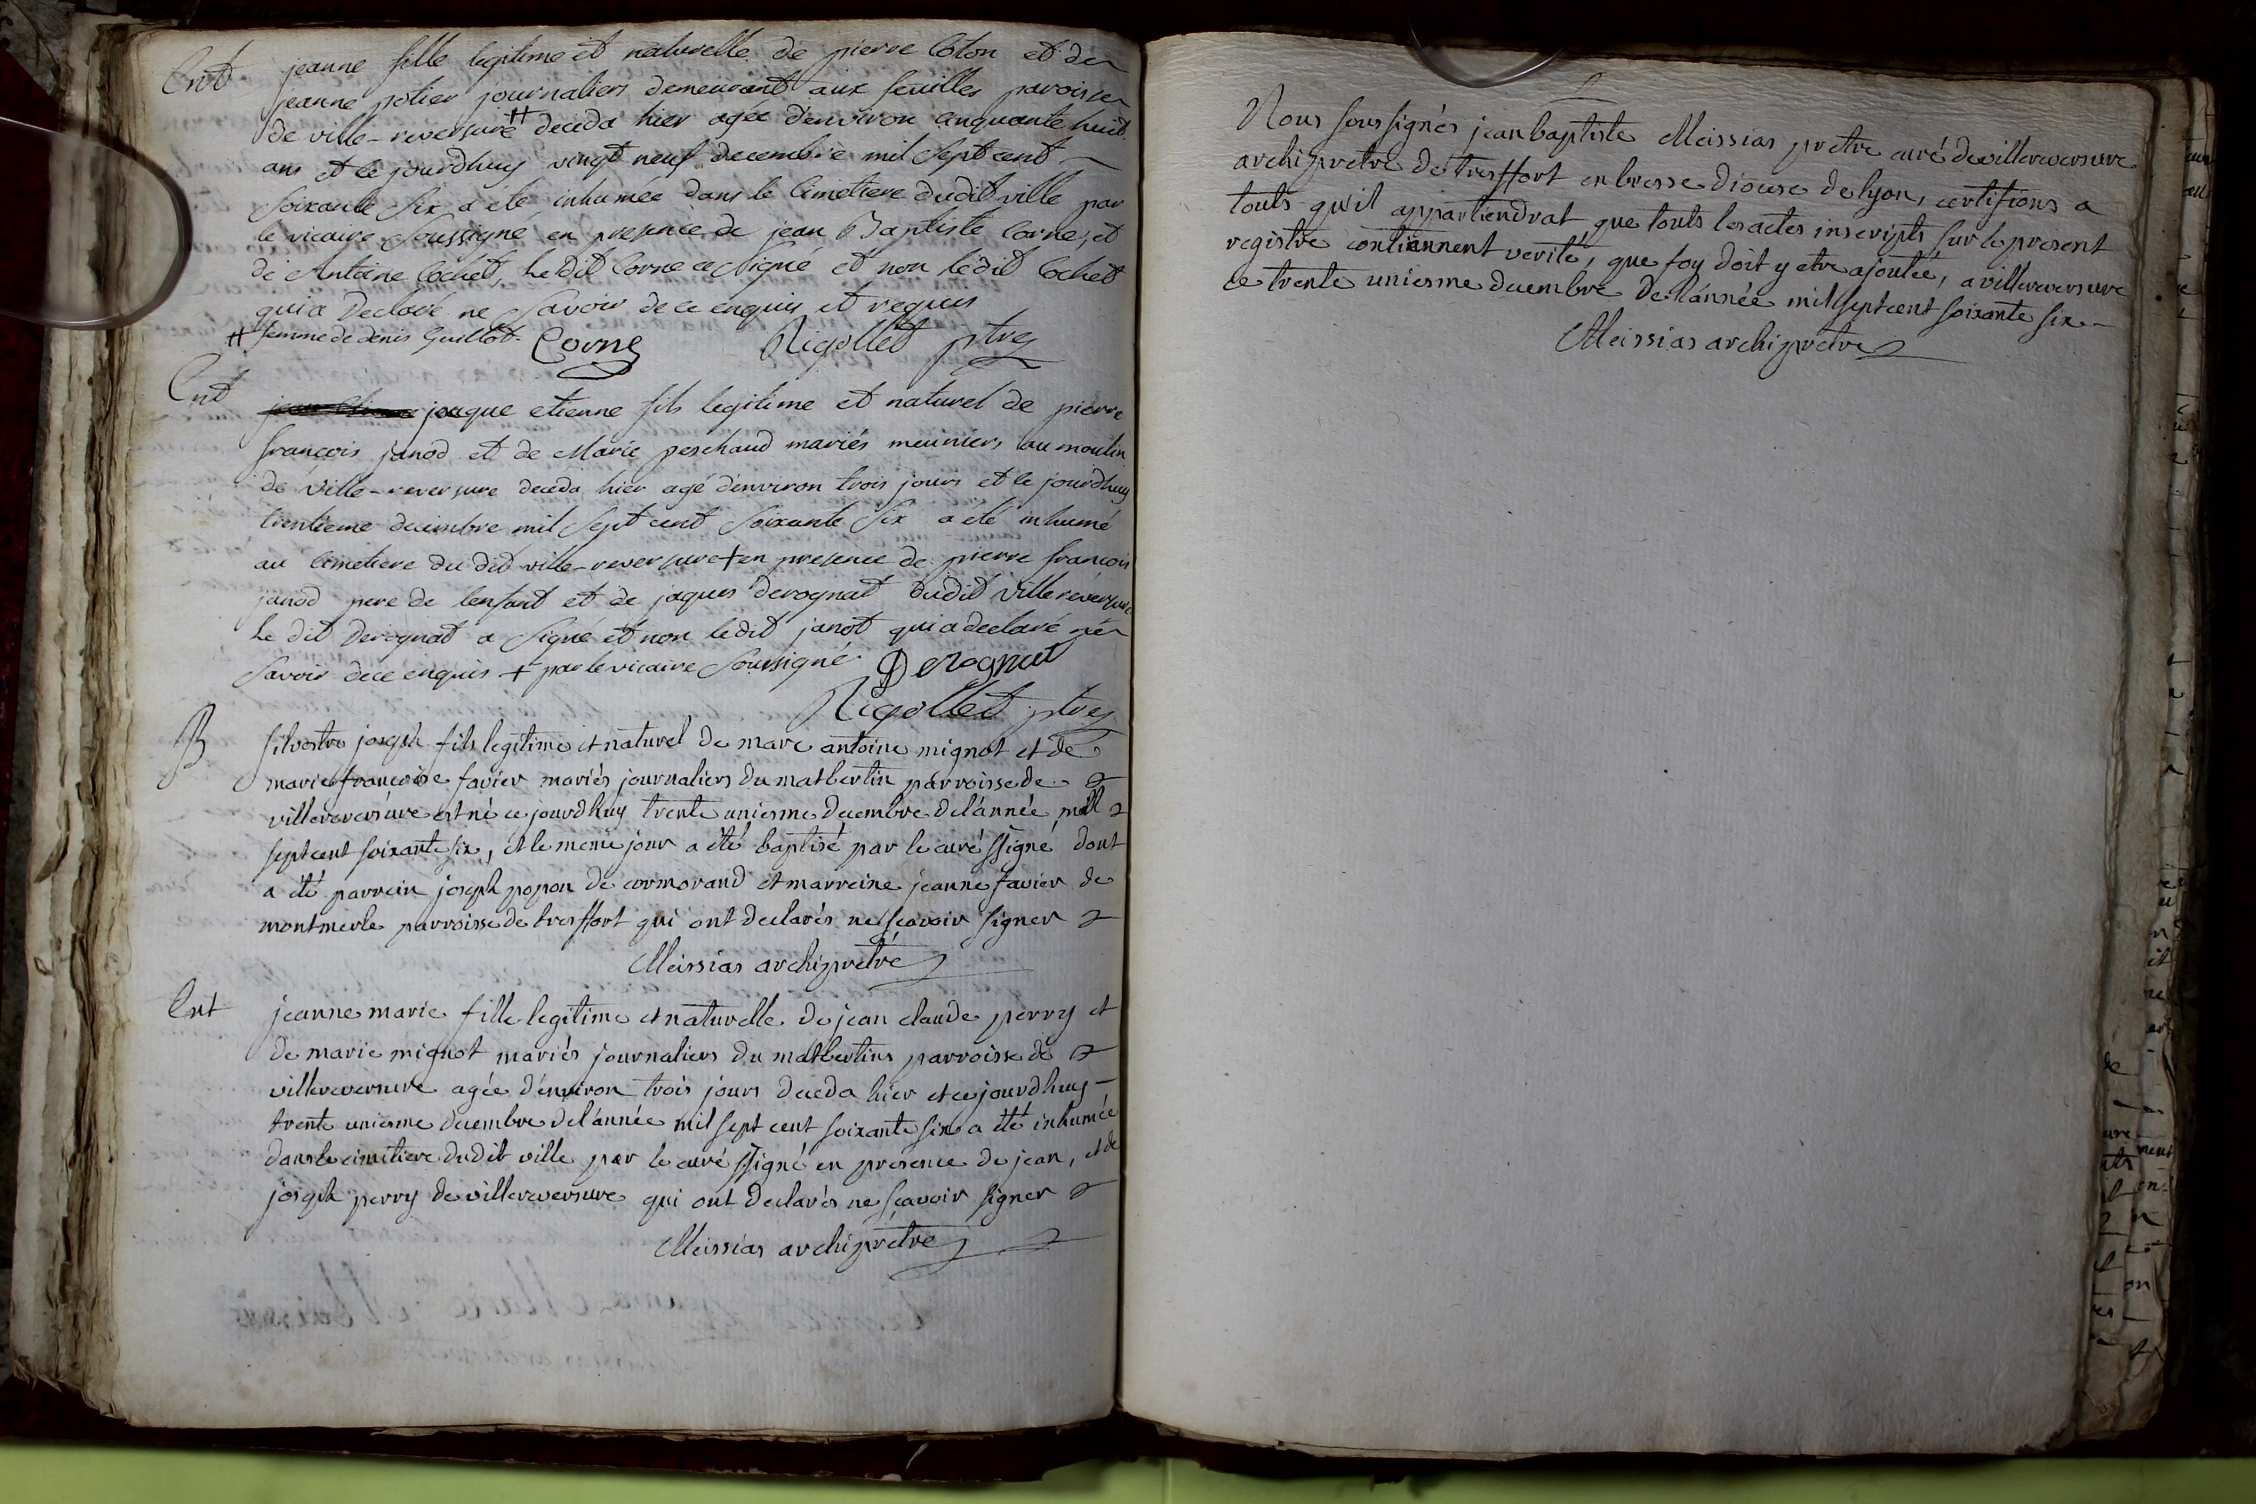 Ent
jeanne fille legitime et naturelle de pierre Coton et de
jeanne potier journaliers demeurant aux feuilles paroisse
de ville-reversure ++ deceda hier agée d'environ cinquante huit
ans et ce jourdhuy vingt neuf decembre mil Sept cent
Soixante Six a été inhumée dans le Cimetiere dudit ville par
le vicaire Soussigné en presence de jean Baptiste Corne, et
de Antoine Cochet, Le dit Corne a signé et non ledit Cochet
qui a Declaré ne Savoir de ce enquis et requis
++ femme de denis Guillot.
Corne Rigollet ptre
Ent
jaque etienne fils legitime et naturel de pierre
françois janod et de Marie peschaud mariés meuniers au moulin
de ville-reversure deceda hier agé d'environ trois jours et ce jourdhuy
trentieme decembre mil Sept cent Soixante Six a été inhumé
au Cimetiere du dit ville-reversure + en presence de pierre françois
janod pere de l'enfant et de jaques Derognat dudit Villereversure
Le dit Derognat a Signé et non ledit janot qui a declaré ne
Savoir de ce enquis + par le vicaire Soussigné. Derognat
Rigollet ptre
B
silvestre joseph fils legitime et naturel de marc antoine mignot et de
marie françoise favier mariés journaliers du matbertin parroisse de
villereversure est né ce jourdhuy trente uniesme decembre de l'année mil
sept cent soixante six, et le meme jour a été baptisé par le curé ssigné dont
a été parrein joseph popon de cormorand et marreine jeanne favier de
montmerle parroisse de tresffort qui ont declarés ne sçavoir signer
Meissias archiprétre
Ent
jeanne marie fille legitime et naturelle de jean claude perry et
de marie mignot mariés journaliers du matbertins parroisse de
villereversure agée d'environ trois jours deceda hier et ce jourdhuy
trente uniesme decembre de l'année mil sept cent soixante six a été inhumée
dans le cimitiere dudit ville par le curé ssigné en presence de jean, et de
joseph perry de villereversure qui ont declarés ne sçavoir signer
Meissias archiprétre
Nous soussignés jean baptiste Meissias pretre curé de villereversure
archipretre de tresffort en bresse diocese de lyon, certifions a
touts qu'il appartiendrat que touts les actes inscripts sur le present
registre contiennent verité, que foy doit y etre ajoutée, a villereversure
ce trente uniesme decembre de l'année mil sept cent soixante six
Meissias archipretre